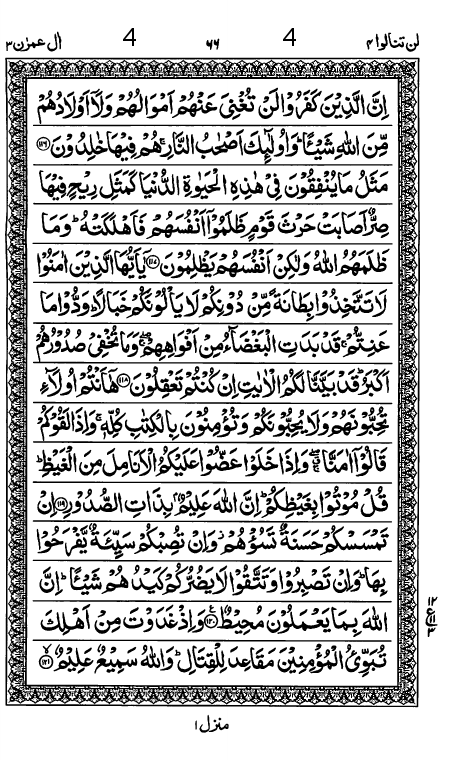 لن تنالوا ۴ 4 ۶۶ 4 اٰل عمرٰن ۳
اِنَّ الَّذِيْنَ كَفَرُوْا لَنْ تُغْنِيَ عَنْهُمْ اَمْوَالُهُمْ وَلَاۤ اَوْلَادُهُمْ
مِّنَ اللّٰهِ شَيْـًٔا ؕ وَاُولٰٓئِكَ اَصْحٰبُ النَّارِ ۚ هُمْ فِيْهَا خٰلِدُوْنَ ﴿۱۱۶﴾
مَثَلُ مَا يُنْفِقُوْنَ فِيْ هٰذِهِ الْحَيٰوةِ الدُّنْيَا كَمَثَلِ رِيْحٍ فِيْهَا
صِرٌّ اَصَابَتْ حَرْثَ قَوْمٍ ظَلَمُوْۤا اَنْفُسَهُمْ فَاَهْلَكَتْهُ ؕ وَمَا
ظَلَمَهُمُ اللّٰهُ وَلٰكِنْ اَنْفُسَهُمْ يَظْلِمُوْنَ ﴿۱۱۷﴾ يٰۤاَيُّهَا الَّذِيْنَ اٰمَنُوْا
لَا تَتَّخِذُوْا بِطَانَةً مِّنْ دُوْنِكُمْ لَا يَاْلُوْنَكُمْ خَبَالًا ؕ وَدُّوْا مَا
عَنِتُّمْ ۚ قَدْ بَدَتِ الْبَغْضَآءُ مِنْ اَفْوَاهِهِمْ ۖۚ وَمَا تُخْفِيْ صُدُوْرُهُمْ
اَكْبَرُ ؕ قَدْ بَيَّنَّا لَكُمُ الْاٰيٰتِ اِنْ كُنْتُمْ تَعْقِلُوْنَ ﴿۱۱۸﴾ هٰۤاَنْتُمْ اُولَآءِ
تُحِبُّوْنَهُمْ وَلَا يُحِبُّوْنَكُمْ وَتُؤْمِنُوْنَ بِالْكِتٰبِ كُلِّهٖ ۚ وَاِذَا لَقُوْكُمْ
قَالُوْۤا اٰمَنَّا ۖۚ وَاِذَا خَلَوْا عَضُّوْا عَلَيْكُمُ الْاَنَامِلَ مِنَ الْغَيْظِ ؕ
قُلْ مُوْتُوْا بِغَيْظِكُمْ ؕ اِنَّ اللّٰهَ عَلِيْمٌۢ بِذَاتِ الصُّدُوْرِ ﴿۱۱۹﴾ اِنْ
تَمْسَسْكُمْ حَسَنَةٌ تَسُؤْهُمْ ۫ وَاِنْ تُصِبْكُمْ سَيِّئَةٌ يَّفْرَحُوْا
بِهَا ؕ وَاِنْ تَصْبِرُوْا وَتَتَّقُوْا لَا يَضُرُّكُمْ كَيْدُهُمْ شَيْـًٔا ؕ اِنَّ
اللّٰهَ بِمَا يَعْمَلُوْنَ مُحِيْطٌ ﴿۱۲۰﴾ وَاِذْ غَدَوْتَ مِنْ اَهْلِكَ
تُبَوِّئُ الْمُؤْمِنِيْنَ مَقَاعِدَ لِلْقِتَالِ ؕ وَاللّٰهُ سَمِيْعٌ عَلِيْمٌ ﴿۱۲۱﴾
۱۲
ع ۱۱
۳
منزل ۱